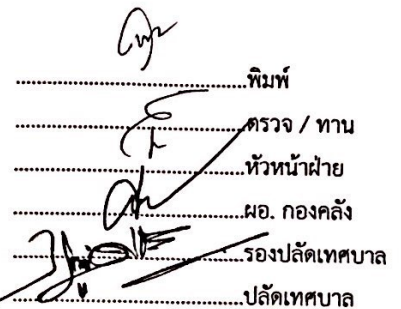 ..............................................พิมพ์
..............................................ตรวจ / ทาน
..............................................หัวหน้าฝ่าย
..............................................ผอ. กองคลัง
..............................................รองปลัดเทศบาล
..............................................ปลัดเทศบาล